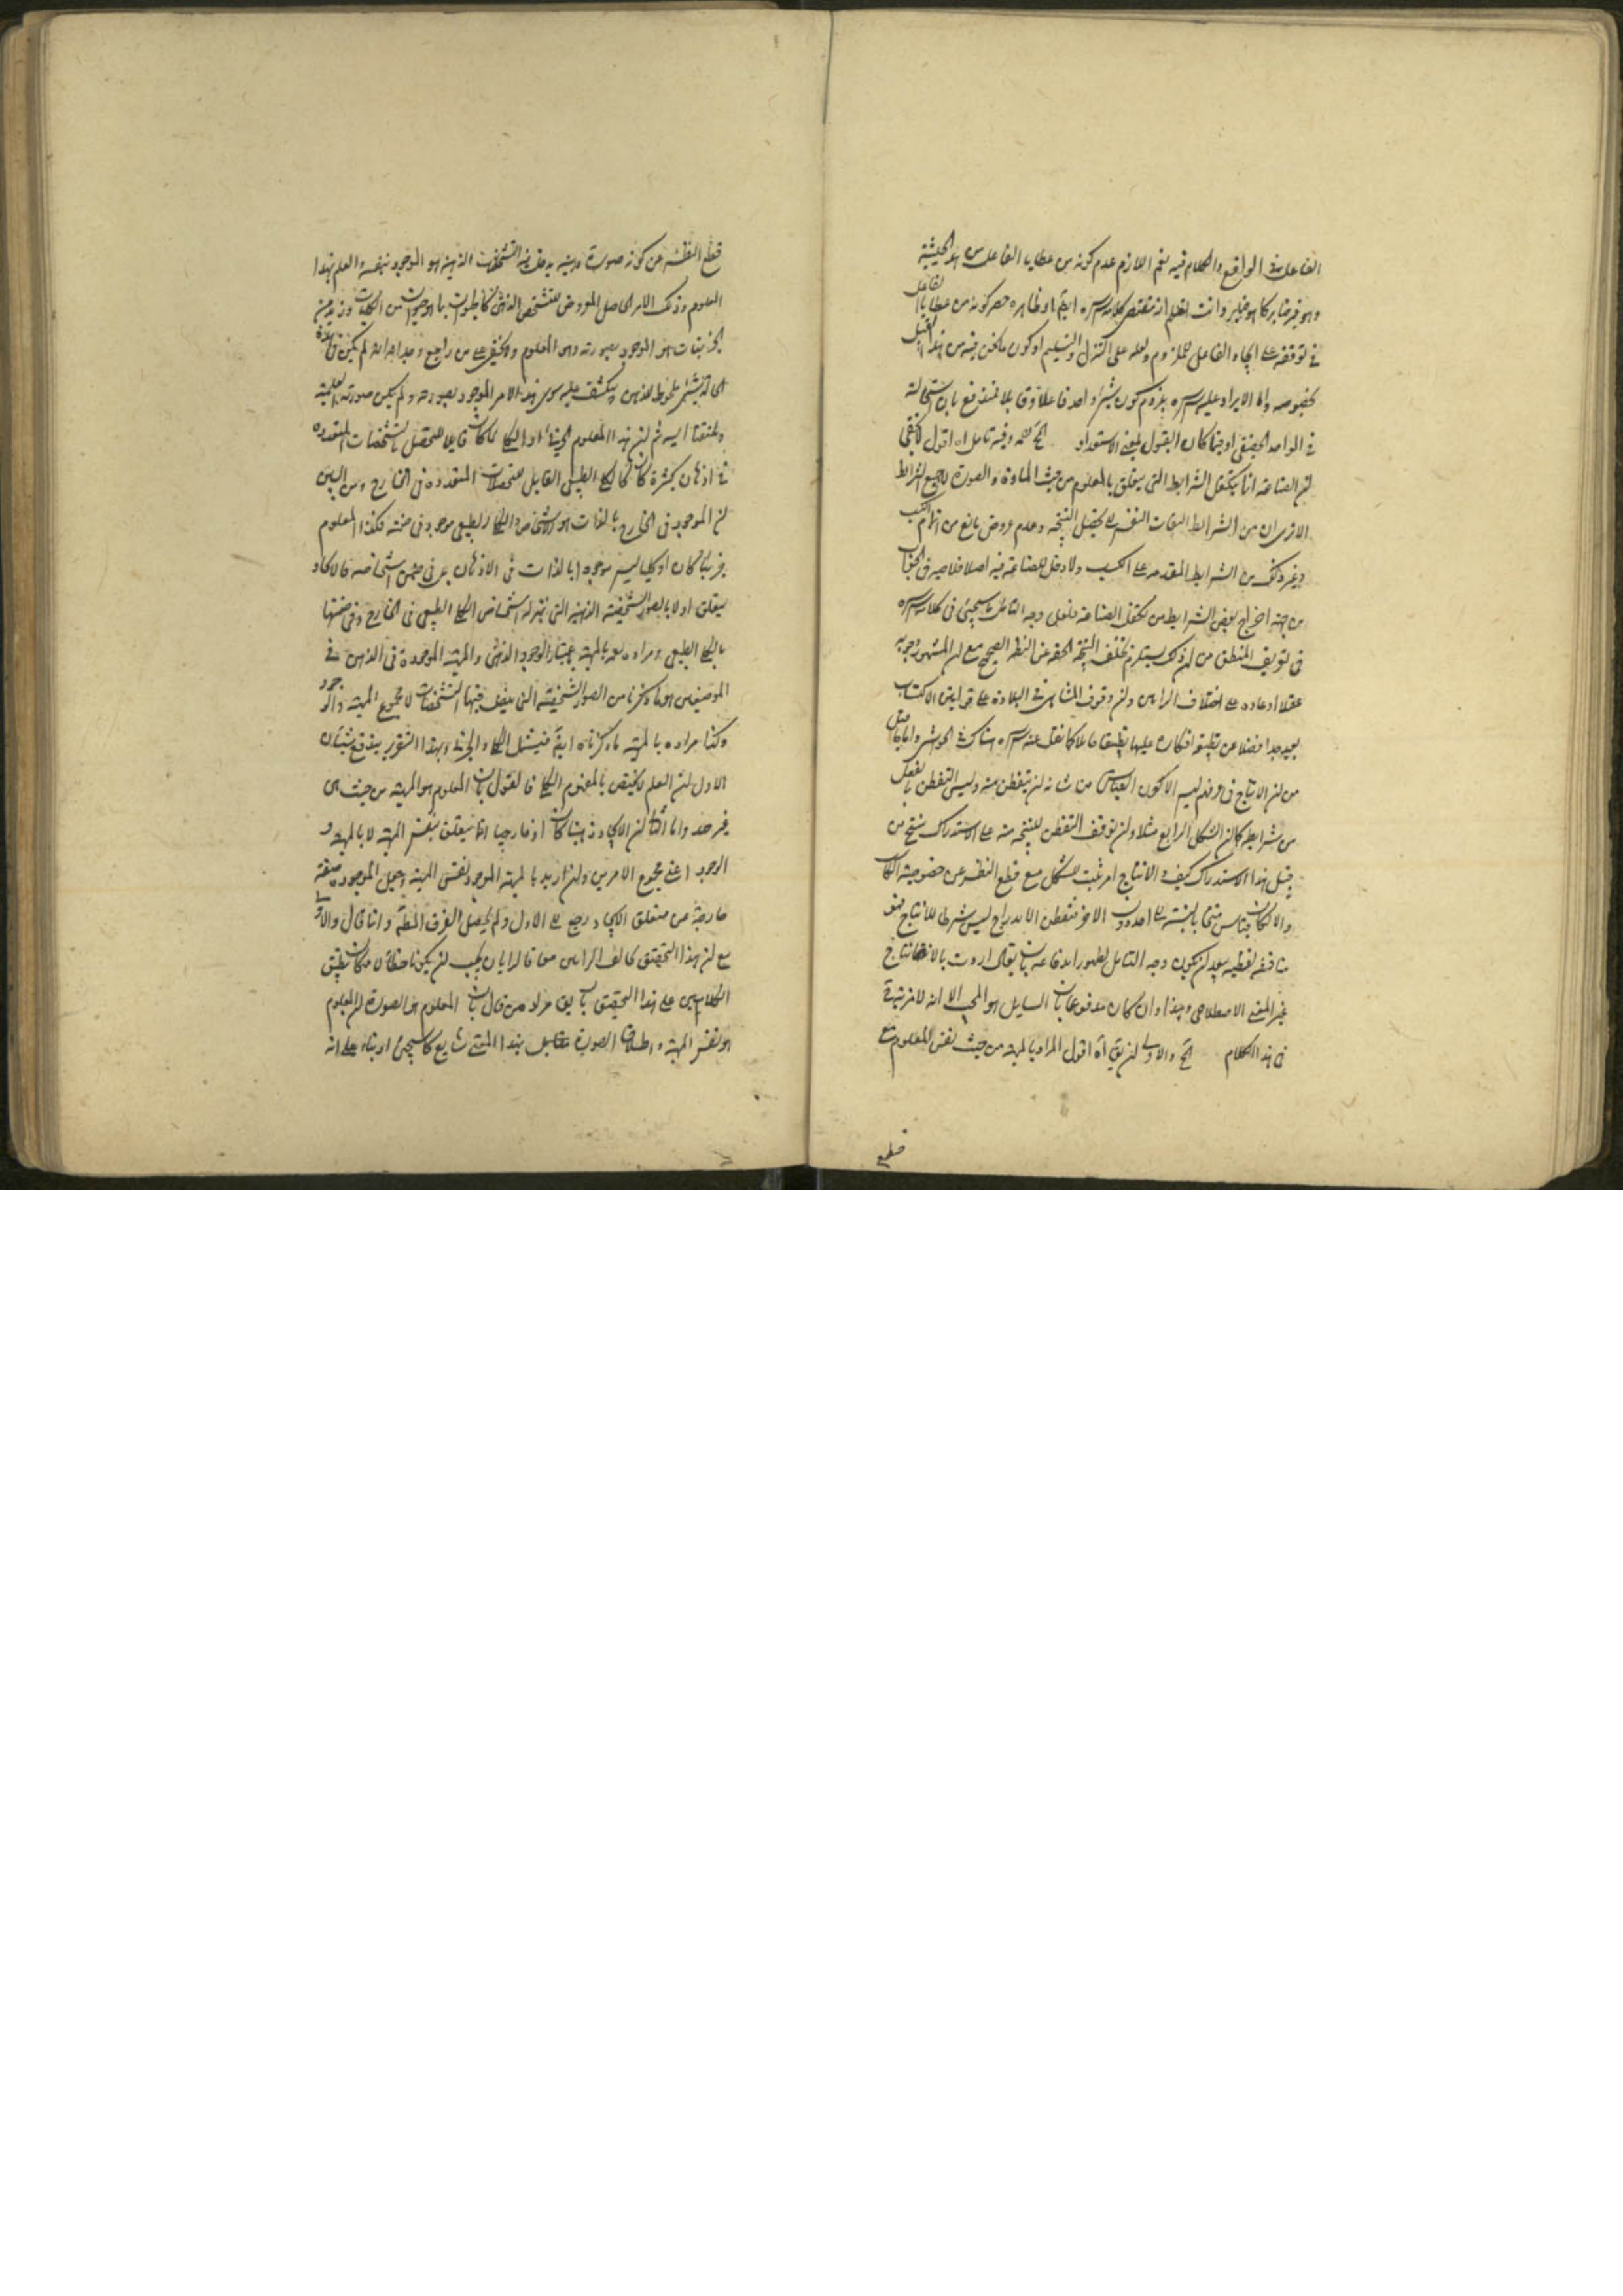 الفاعل في الواقع والكلام فيه نعم اللازم عدم كونه من عطايا الفاعل من هذه الحيثية
وهو غير ضاير كما هو وانت تعلم ان مقتضى كلامه سره ايضا او ظاهره حصر كونه من عطايا الفاعل
في توقفه على ايجاد الفاعل للملزوم ولعله على التنزل والتسليم او كون ما نحن فيه من هذا القبيل
بخصوصه واما الايراد عليه سره بلزوم كون شيء واحد فاعلا وقابلا فمندفع بان استحالته
في الواحد الحقيقي او فيما كان القبول بمعنى الاستعداد وفيه تامل اه اقول لا يخفى
ان الصناعة انما يتكفل الشرايط التي يتعلق بالمعلوم من حيث المادة والصورة لا جميع الشرايط
الا ترى ان من الشرايط التفات النفس الى تحصيل النتيجة وعدم عروض مانع من اتمام الكسب
وغير ذلك من الشرايط المقدمة على الكسب ولا دخل للصناعة فيه اصلا
من جهة اخراج بعض الشرايط من تكفل الصناعة فلعل وجه التامل ما سيجيء في كلامه سره
في تعريف المنطق من ان ذلك يستلزم تخلف النتيجة الحقة عن النظر الصحيح مع ان المشهور وجوبه
عقلا او عادة على اختلاف الرايين وان وقوف المتناهي في البلادة على قوانين الاكتساب
بعيد جدا فضلا عن تطبيق افكاره عليها تطبيقا كاملا كما نقل عنه سره هناك في الحواشي واما ما قيل
من ان الانتاج في عرفهم ليس الا كون القياس من شانه ان يتفطن منه وليس التفطن بالفعل
من شرايطه كما ان الشكل الرابع مثلا وان توقف التفطن للنتيجة منه على الاستدراك ينتج من
قبل هذا الاستدراك كيف والانتاج امر ثبت للشكل مع قطع النظر عن خصوصية
والا لكان قياس منتجا بالنسبة الى احد دون الاخر فتفطن الاندراج ليس شرطا للانتاج فهو
مناقشة لفظية بعيد ان يكون وجه التامل لظهور اندفاعه بان يقال اردت بالانتاج
غير المعنى الاصطلاحي وهذا وان كان مدفوعا بان السايل هو المجيب الا انه لا مزية
في هذا الكلام والاولى ان يقال اه اقول المراد بالمهية من حيث نفس المعلوم مع
قطع
قطع النظر عن كونه صورة ذهنية التشخصات الذهنية هو الموجود بنفسه والعلم بهذا
المعلوم وذلك الامر الحاصل المعروض للتشخص الذهني من الكليات وزيد من
الجزئيات هو الموجود بصورته وهو المعلوم ولا يخفى على من راجع وجدانه انه لم يكن في هذه
الحالة شيء ملحوظ للذهن ومنكشف عليه سوى هذا الامر الموجود بصورته ولم يكن صورته العلمية
وملتفتا اليه ثم ان هذا المعلوم الجزئي او الكلي لما كان قابلا للتحصل بالتشخصات المتعددة
في اذهان كثيرة كان كالكلي الطبيعي القابل للتحصلات المتعددة في الخارج ومن البين
ان الموجود في الخارج بالذات هو الاشخاص والكلي الطبيعي موجود في ضمنه فكذا المعلوم
جزئيا كان او كليا ليس موجودا بالذات في الاذهان بل في ضمن اشخاصه فالايجاد
يتعلق اولا بالصور الشخصية الذهنية التي بمنزلة اشخاص الكلي الطبيعي في الخارج وفي ضمنها
بالكلي الطبيعي ومراده بالمهية باعتبار الوجود الذهني والمهية الموجودة في الذهن في
الموضعين هو ما ذكرنا من الصور الشخصية التي التشخصات لا مجموع المهية والوجود
وكذا مراده بالمهية ما ذكرناه ايضا فيشمل الكلي والجزئي وبهذا التقرير يندفع شيئان
الاول ان العلم لا يختص بالمفهوم الكلي فالقول بان المعلوم هو المهية من حيث هي
غير صد واما ثانيا ان الايجاد ذهنيا كان او خارجيا انما يتعلق بنفس المهية لا بالمهية و
الوجود اعني مجموع الامرين وان اريد بالمهية الموجود نفس المهية وجعل الموجود صفة
خارجة من متعلق الايجاد رجع الى الاول ولم يحصل الفرق المط وانما قال والاولى
مع ان هذا التحقيق يخالف الرايين معا فالرايان يجب ان يكونا خطأ لامكان تطبيق
الكلامين على هذا التحقيق بان يقال مراد من قال بان المعلوم هو الصورة ان المعلوم
هو نفس المهية واطلاق الصورة بهذا المعنى شايع كما سيجيء او بناء على انه